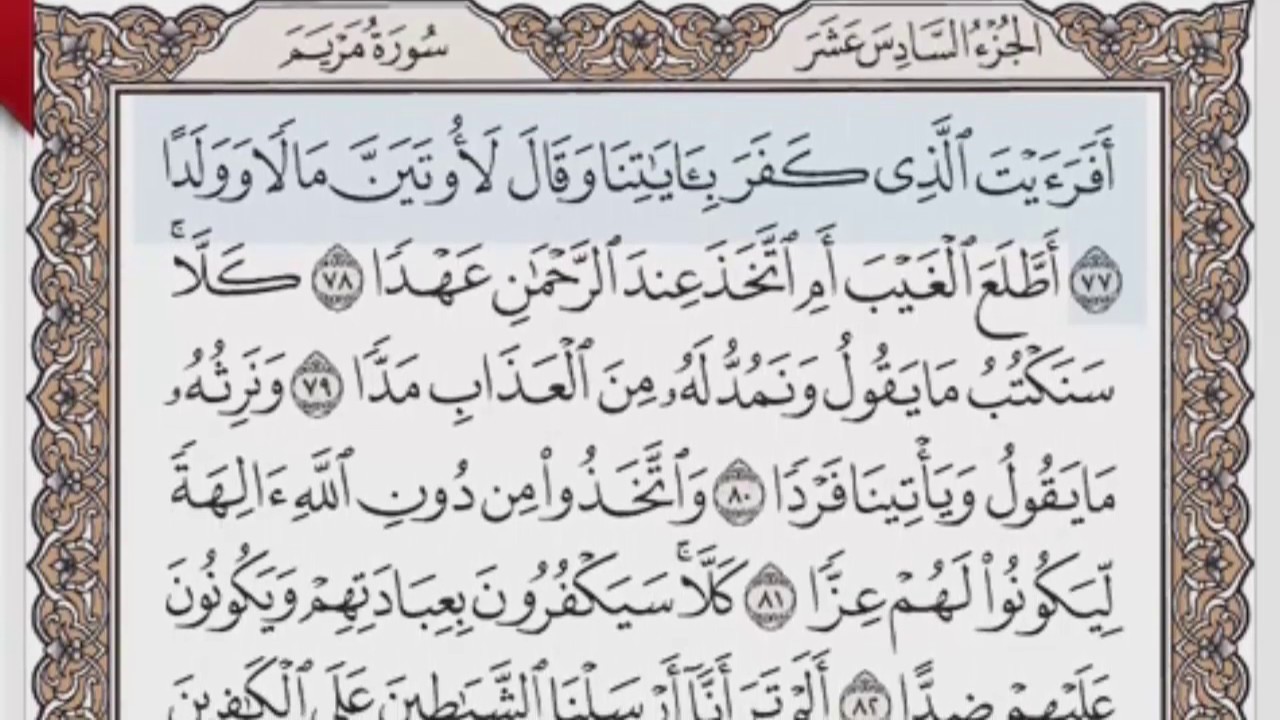 الجزء السادس عشر
سورة مريم
أَفَرَءَيْتَ ٱلَّذِى كَفَرَ بِـَٔايَـٰتِنَا وَقَالَ لَأُوتَيَنَّ مَالًا وَوَلَدًا
٧٧ أَطَّلَعَ ٱلْغَيْبَ أَمِ ٱتَّخَذَ عِندَ ٱلرَّحْمَـٰنِ عَهْدًا ٧٨ كَلَّا ۚ
سَنَكْتُبُ مَا يَقُولُ وَنَمُدُّ لَهُۥ مِنَ ٱلْعَذَابِ مَدًّا ٧٩ وَنَرِثُهُۥ
مَا يَقُولُ وَيَأْتِينَا فَرْدًا ٨٠ وَٱتَّخَذُوا۟ مِن دُونِ ٱللَّهِ ءَالِهَةً
لِّيَكُونُوا۟ لَهُمْ عِزًّا ٨١ كَلَّا ۚ سَيَكْفُرُونَ بِعِبَادَتِهِمْ وَيَكُونُونَ
عَلَيْهِمْ ضِدًّا ٨٢ أَلَمْ تَرَ أَنَّآ أَرْسَلْنَا ٱلشَّيَـٰطِينَ عَلَى ٱلْكَـٰفِرِينَ